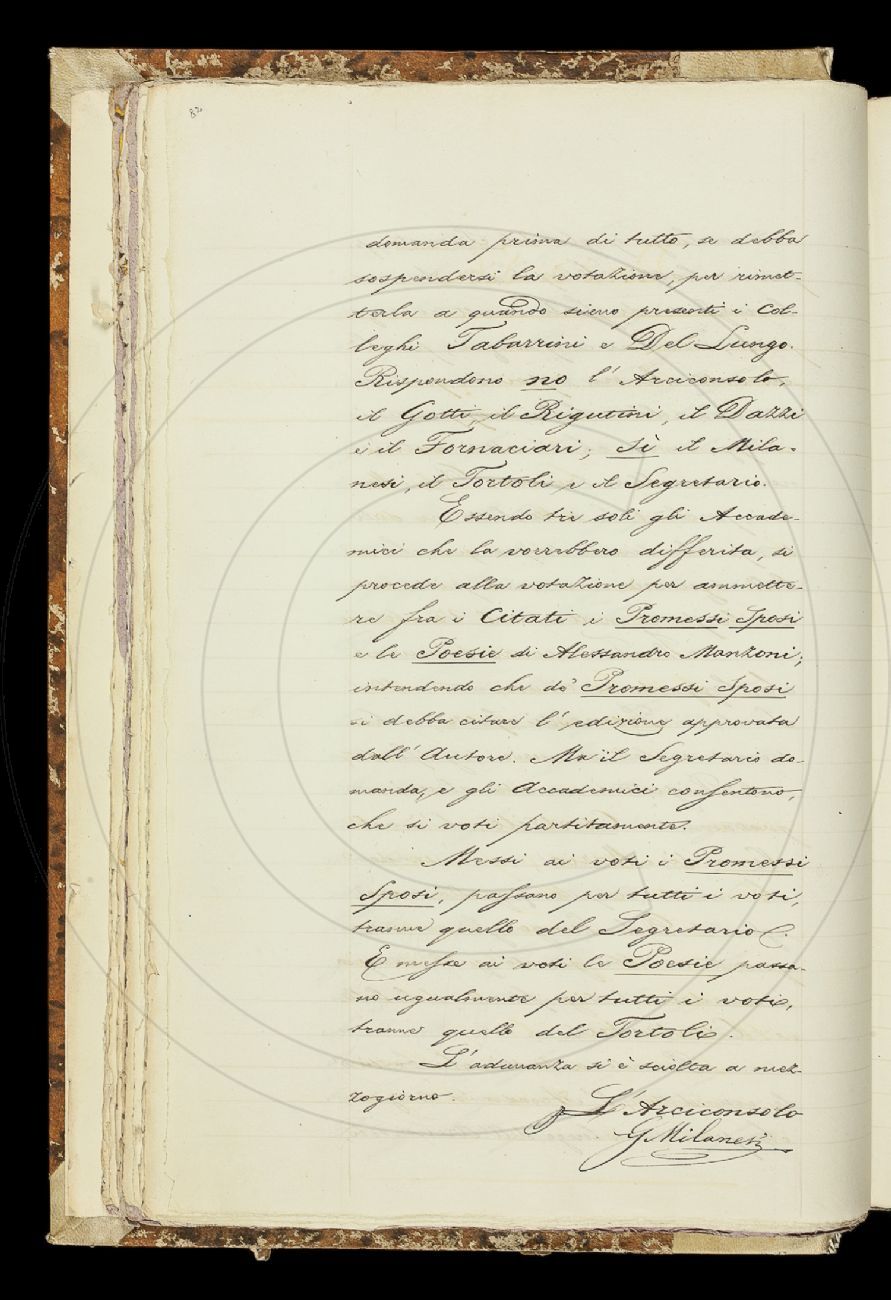 82
domanda prima di tutto, se debba
sospendersi la votazione, per rimet-
terla a quando sieno presenti i Col-
leghi Tabarrini e Del Lungo.
Rispondono no l'Arciconsolo,
il Gotti, il Rigutini, il Dazzi
e il Fornaciari; sì il Mila-
nesi, il Tortoli e il Segretario.
Essendo tre soli gli Accade-
mici che la vorrebbero differita, si
procede alla votazione per ammette-
re fra i Citati i Promessi Sposi
e le Poesie di Alessandro Manzoni;
intendendo che de' Promessi Sposi
si debba citare l'edizione approvata
dall'Autore. Ma il Segretario do-
manda, e gli Accademici consentono,
che si voti partitamente.
Messi ai voti i Promessi
Sposi, passano per tutti i voti,
tranne quello del Segretario.
E messe ai voti le Poesie passa-
no ugualmente per tutti i voti,
tranne quello del Tortoli.
L'adunanza si è sciolta a mez-
zogiorno.
L'Arciconsolo
G Milanesi